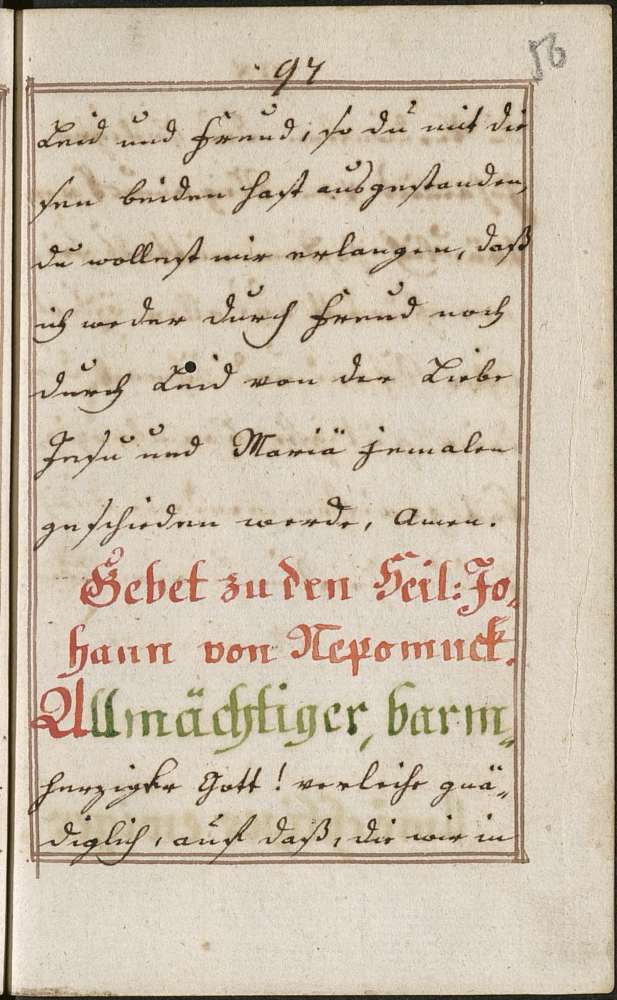 97
56
Leid und Freud, so du mit die
sen beiden hast ausgestanden,
du wollest mir erlangen, daß
ich weder durch Freud noch
durch Leid von der Liebe
Jesu und Mariä jemalen
geschieden werde, Amen.
Gebet zu den Heil: Jo,
hann von Nepomuck.
Allmächtiger, barm„
herzigter Gott! verleihe gnä„
diglich, auf daß, die wir in